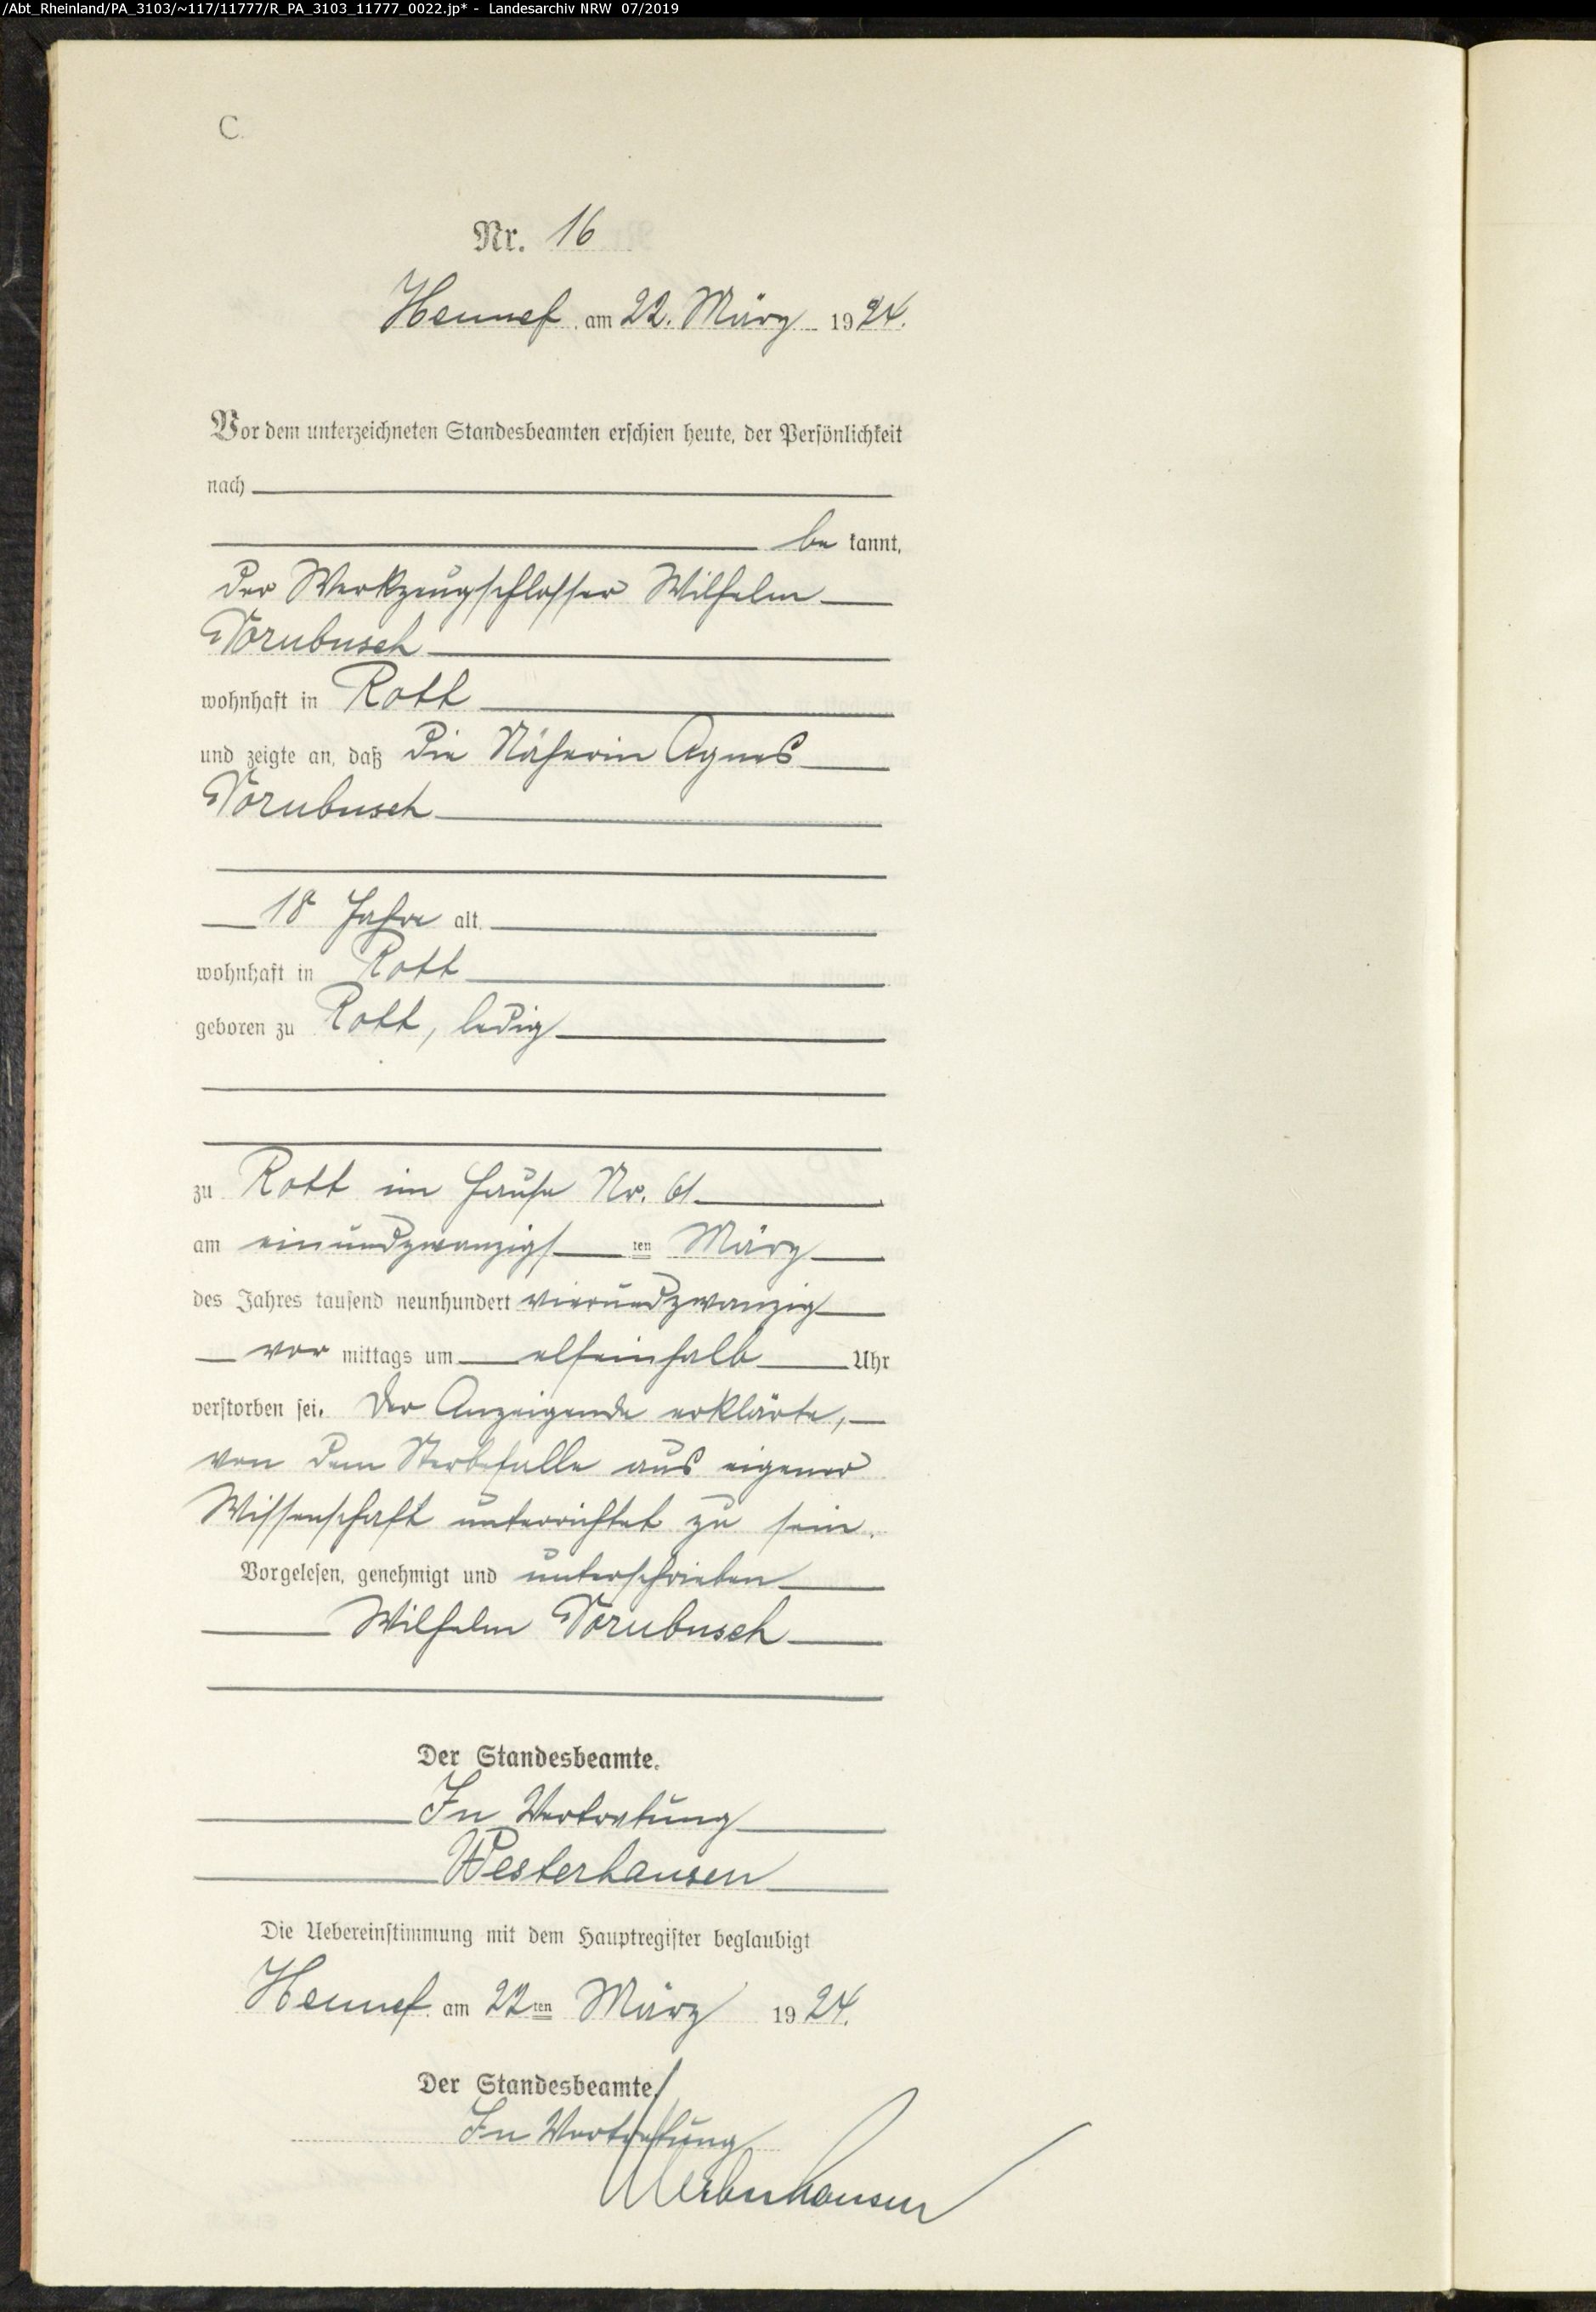 /Abt_Rheinland/PA_3103/~117/11777/R_PA_3103_11777_0022.jp* - Landesarchiv NRW 07/2019
C.
Nr. 16
Hennef am 22. März 1924.
Vor dem unterzeichneten Standesbeamten erschien heute, der Persönlichkeit
nach
be kannt,
der Werkzeugschlosser Wilhelm
Dornbusch
wohnhaft in Rott
und zeigte an, daß die Näherin Agnes
Dornbusch
18 Jahre alt,
wohnhaft in Rott
geboren zu Rott, ledig
zu Rott im Hause Nr. 61
am einundzwanzigsten März
des Jahres tausend neunhundert vierundzwanzig
vor mittags um elfeinhalb Uhr
verstorben sei. Der Anzeigende erklärte,
von dem Sterbefalle aus eigener
Wissenschaft unterrichtet zu sein.
Vorgelesen, genehmigt und unterschrieben
Wilhelm Dornbusch
Der Standesbeamte.
In Vertretung
Westerhausen
Die Uebereinstimmung mit dem Hauptregister beglaubigt
Hennef am 22ten März 1924.
Der Standesbeamte.
In Vertretung
Westerhausen